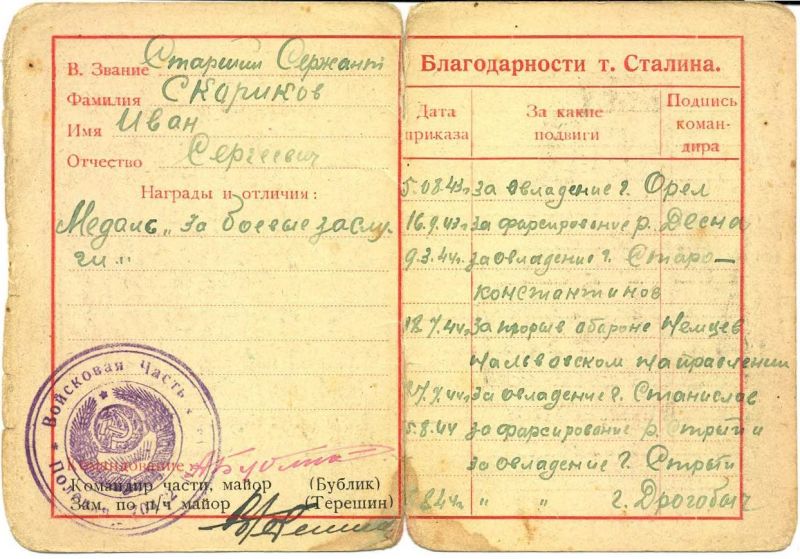 В. Звание Старший Сержант
Фамилия Скориков
Имя Иван
Отчество Сергеевич
Награды и отличия:
Медаль „За боевые заслу-
ги"
Войсковая Часть
Полевая
Командование
Командир части, майор (Бублик)
Зам. по п/ч майор (Терешин)
Благодарности т. Сталина.
Дата приказа
За какие подвиги
Подпись коман-
дира
5.08.43г. за овладение г. Орел
16.9.43г. за фарсирование р. Десна
9.3.44г. за овладение г. Старо-
константинов
18.7.44г. за прорыв обароне немцев
на львовском направлении
27.7.44г. за овладение г. Станислав
5.8.44 за фарсирование р. Стрый и
за овладение г. Стрый
8.44г. „ „ г. Дрогобыч